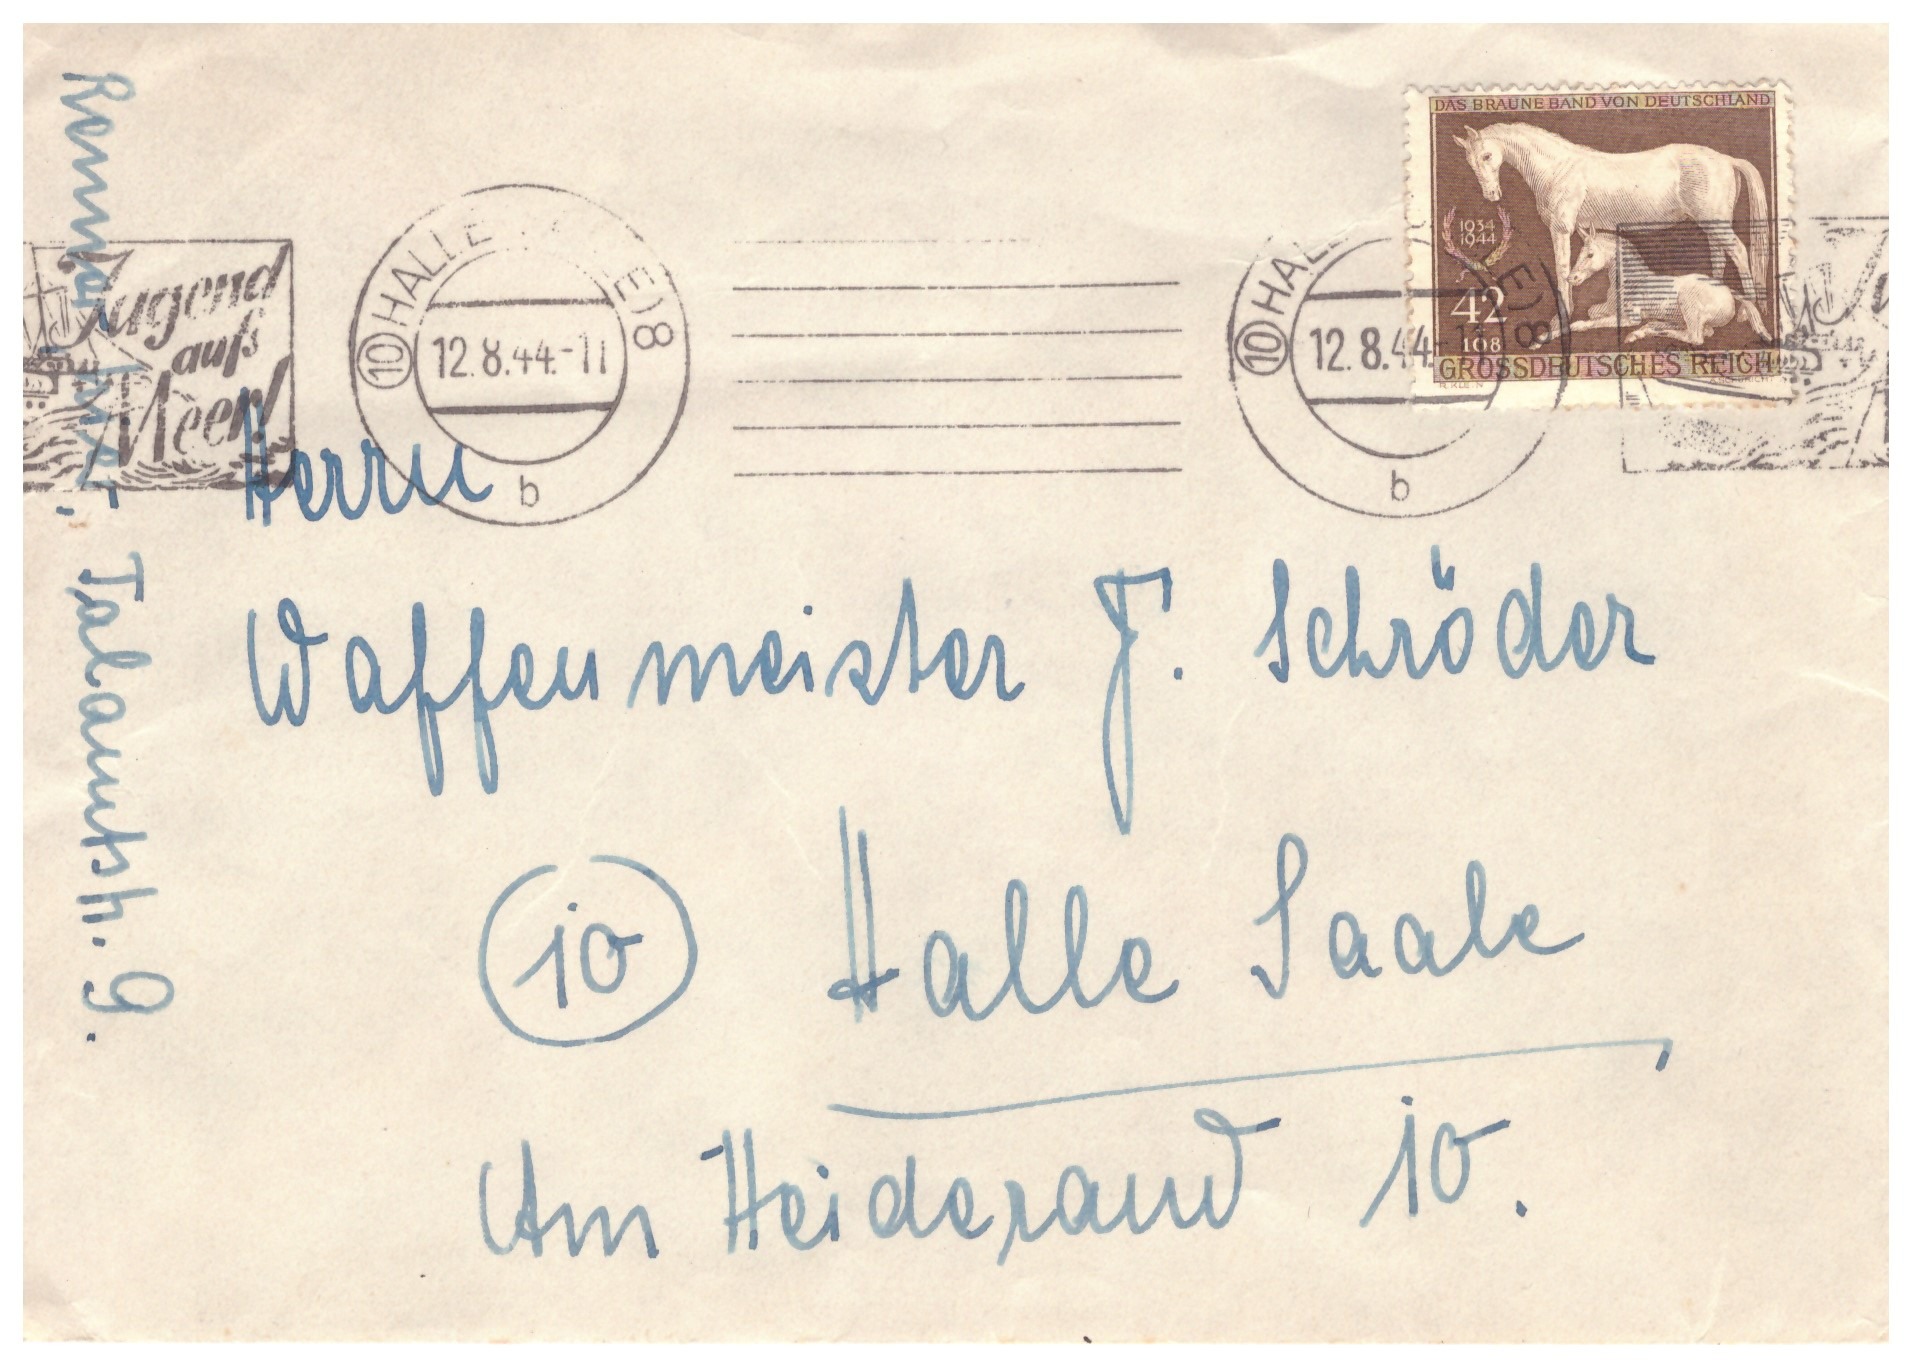 DAS BRAUNE BAND VON DEUTSCHLAND
1934
1944
42
108
GROSSDEUTSCHES REICH
R. KLEIN
Jugend
aufs
Meer!
10 HALLE E) 8
12.8.44.-11
b
10 HAL E) 8
12.8.44
b
Herrn
Waffenmeister J. Schröder
10 Halle Saale
Am Heiderand 10.
Talamtstr. 9.